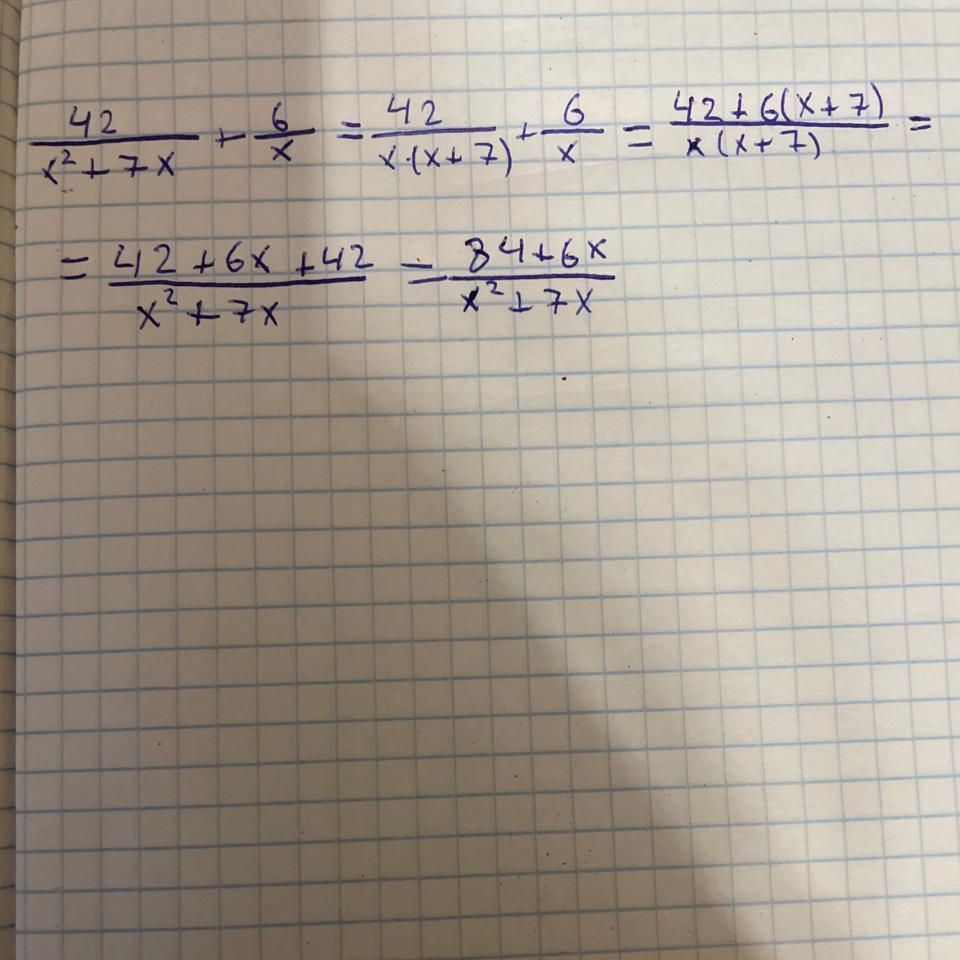 42/(x² + 7x) + 6/x = 42/(x·(x+7)) + 6/x = (42+6(x+7))/(x(x+7)) =
= (42+6x+42)/(x²+7x) = (84+6x)/(x²+7x)